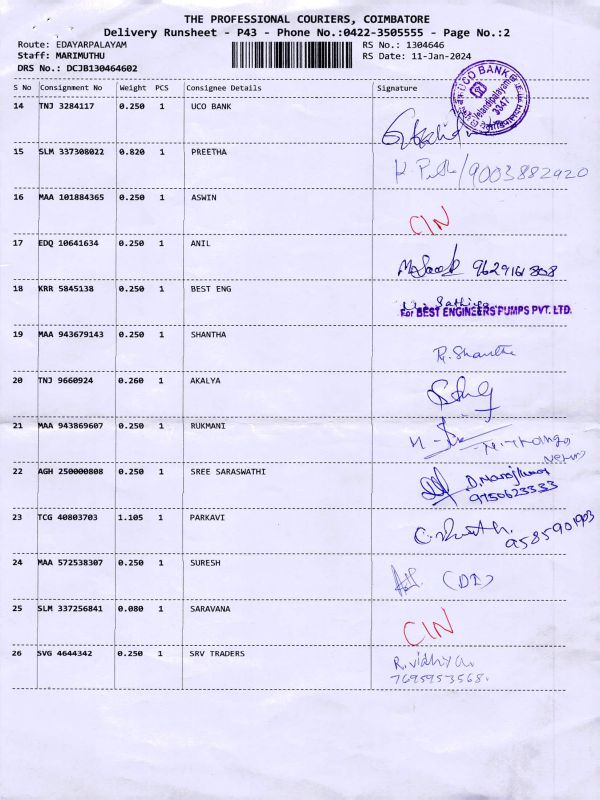 THE PROFESSIONAL COURIERS, COIMBATORE
Delivery Runsheet - P43 - Phone No.:0422-3505555 - Page No.:2
Route: EDAYARPALAYAM RS No.: 1304646
Staff: MARIMUTHU RS Date: 11-Jan-2024
DRS No.: DCJB130464602
S No Consignment No Weight PCS Consignee Details Signature
14 TNJ 3284117 0.250 1 UCO BANK
UCO BANK
3347
15 SLM 337308022 0.820 1 PREETHA
/9003882920
16 MAA 101884365 0.250 1 ASWIN
CIN
17 EDQ 10641634 0.250 1 ANIL
9629161808
18 KRR 5845138 0.250 1 BEST ENG
For BEST ENGINEERS PUMPS PVT. LTD.
19 MAA 943679143 0.250 1 SHANTHA
R. Shantha
20 TNJ 9660924 0.260 1 AKALYA
21 MAA 943869607 0.250 1 RUKMANI
22 AGH 250000808 0.250 1 SREE SARASWATHI
9750623333
23 TCG 40803703 1.105 1 PARKAVI
9585901903
24 MAA 572538307 0.250 1 SURESH
25 SLM 337256841 0.080 1 SARAVANA
CIN
26 SVG 4644342 0.250 1 SRV TRADERS
R. Vidhya
7695953568.